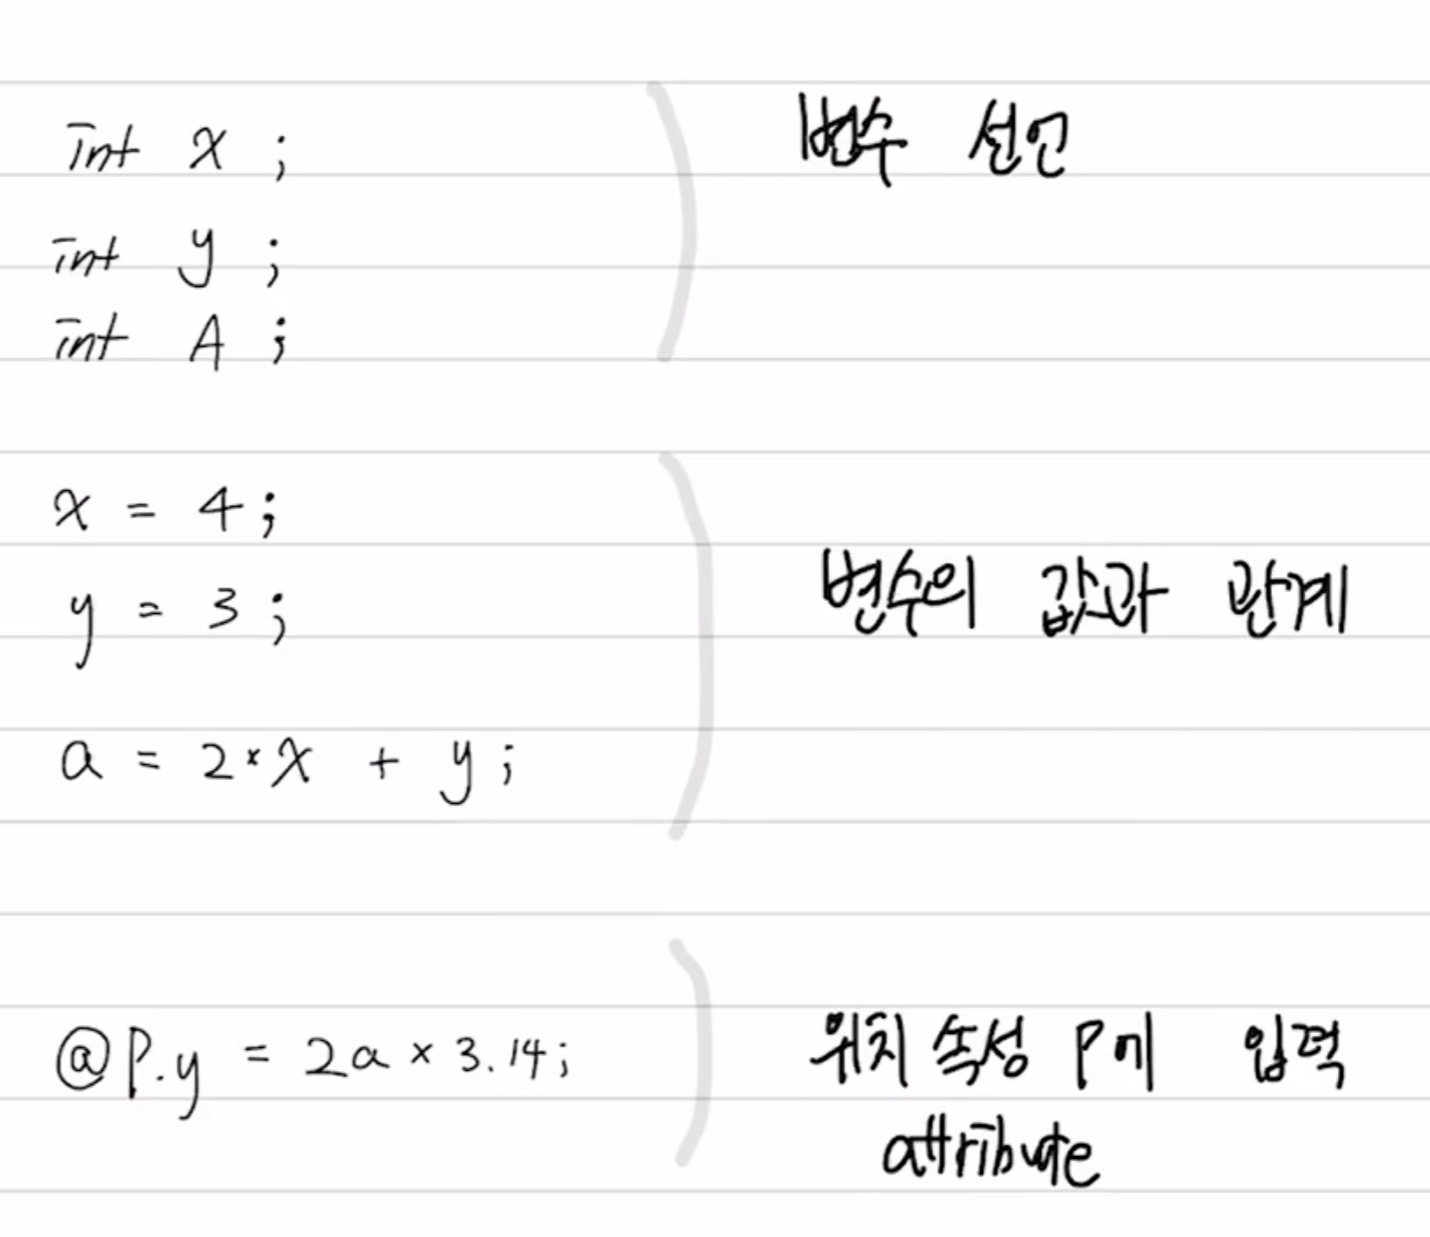 int x ; 변수 선언
int y ;
int A ;
x = 4 ;
y = 3 ; 변수의 값과 관계
a = 2*x + y ;
@P.y = 2a × 3.14 ; 위치 속성 P에 입력
attribute